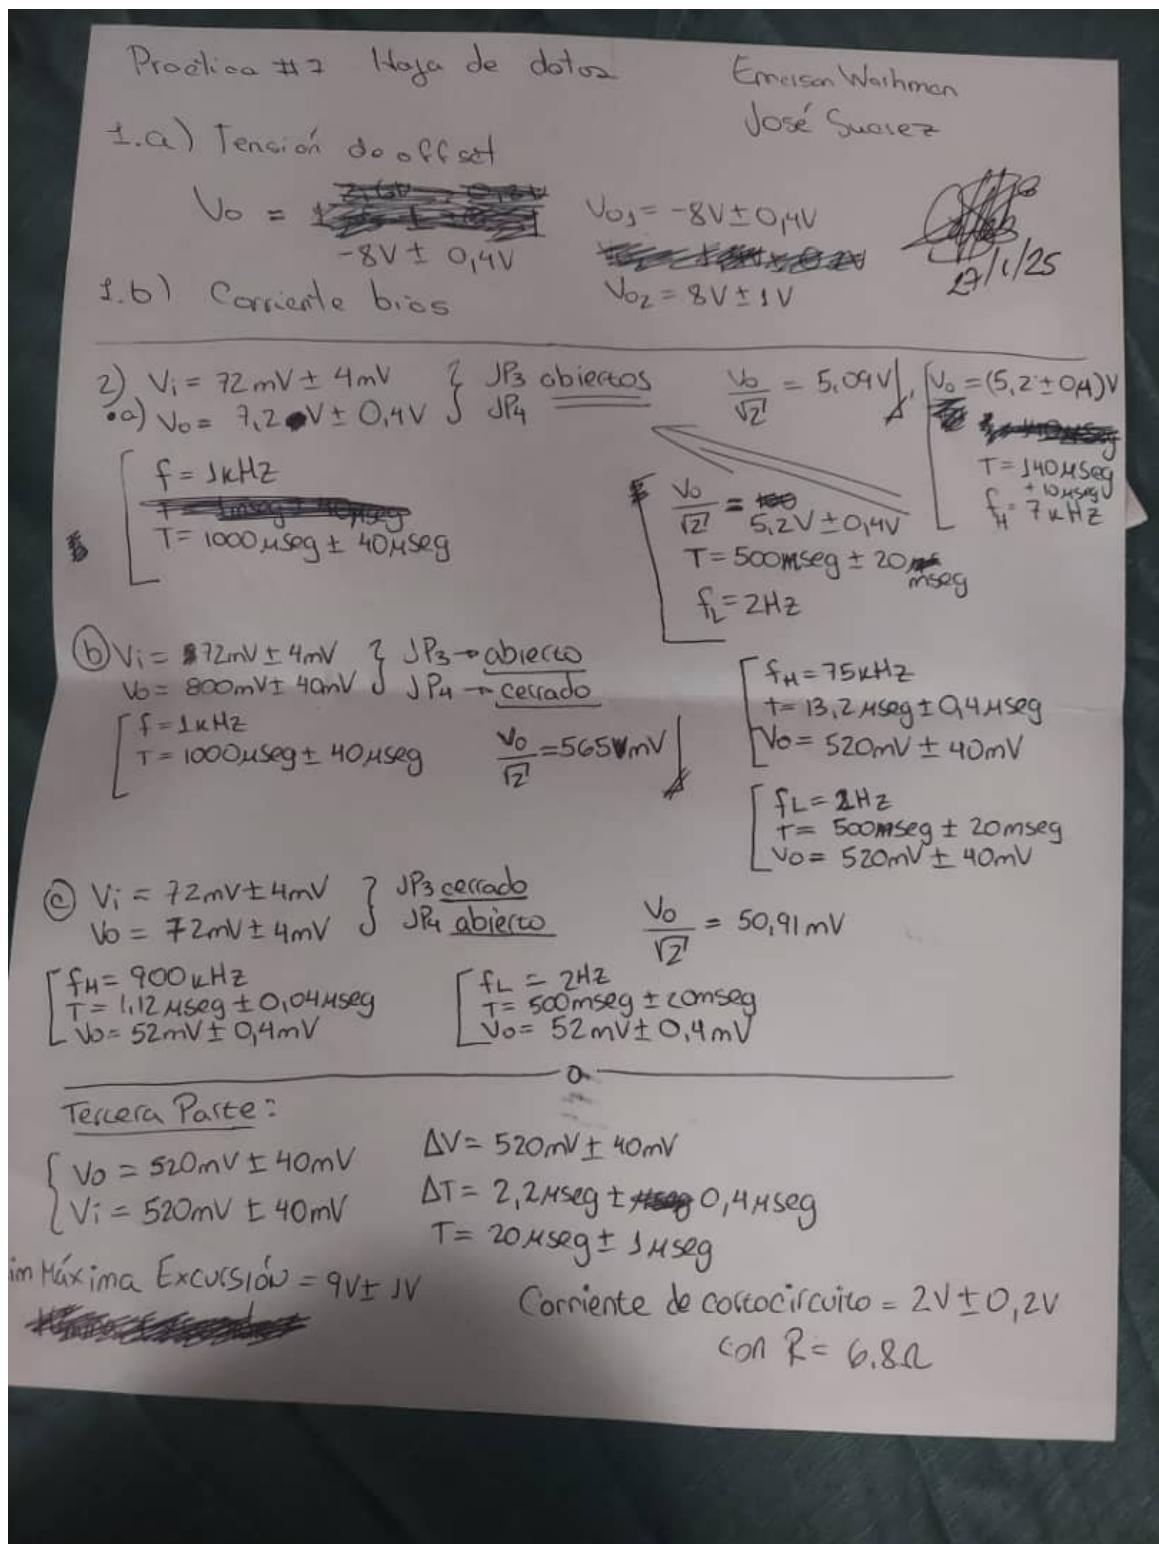 Practica #7 Hoja de datos
Emerson Warhman
José Suarez
1.a) Tensión de offset
Vo =
-8V ± 0,4V
Vo1 = -8V ± 0,4V
Vo2 = 8V ± 1V
27/1/25
1.b) Corriente bias
2) Vi = 72mV ± 4mV } JP3 abiertos
a) Vo = 7,2 V ± 0,4V } JP4
Vo/√2 = 5,09V
Vo = (5,2 ± 0,4)V
T = 140μseg
± 10μseg
fH = 7kHz
f = 1kHz
T = 1000μseg ± 40μseg
Vo/√2 =
5,2V ± 0,4V
T = 500mseg ± 20
mseg
fL = 2Hz
b Vi = 72mV ± 4mV } JP3 → abierto
Vo = 800mV ± 40mV } JP4 → cerrado
f = 1kHz
T = 1000μseg ± 40μseg
Vo/√2 = 565 mV
fH = 75kHz
t = 13,2μseg ± 0,4μseg
Vo = 520mV ± 40mV
fL = 2Hz
T = 500mseg ± 20mseg
Vo = 520mV ± 40mV
c Vi = 72mV ± 4mV } JP3 cerrado
Vo = 72mV ± 4mV } JP4 abierto
Vo/√2 = 50,91mV
fH = 900kHz
T = 1,12μseg ± 0,04μseg
Vo = 52mV ± 0,4mV
fL = 2Hz
T = 500mseg ± 20mseg
Vo = 52mV ± 0,4mV
Tercera Parte:
Vo = 520mV ± 40mV
Vi = 520mV ± 40mV
ΔV = 520mV ± 40mV
ΔT = 2,2μseg ± 0,4μseg
T = 20μseg ± 1μseg
Máxima Excursión = 9V ± 1V
Corriente de cortocircuito = 2V ± 0,2V
con R = 6.8Ω